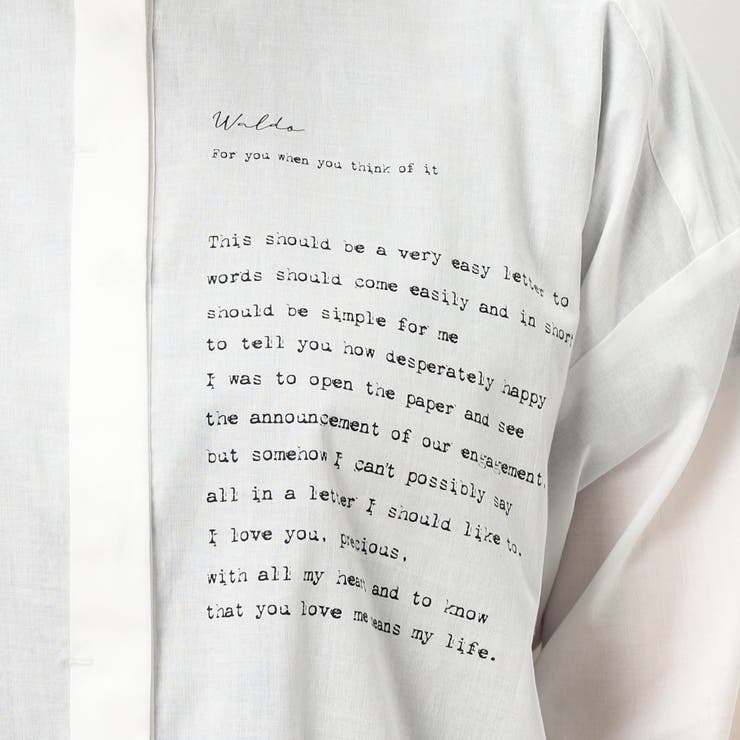 Waldo
For you when you think of it
This should be a very easy letter to
words should come easily and in short
should be simple for me
to tell you how desperately happy
I was to open the paper and see
the announcement of our engagement,
but somehow I can't possibly say
all in a letter I should like to.
I love you, precious,
with all my heart and to know
that you love me means my life.